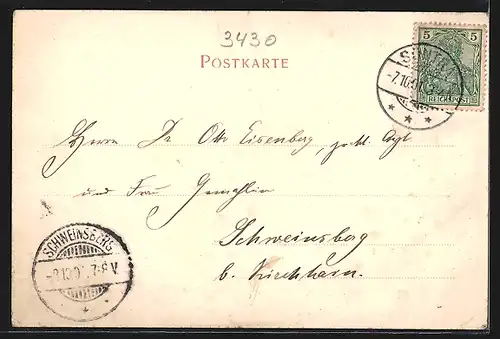 3430
POSTKARTE
5 5
REICHSPOST
SONTRA
-7.10.01
Herrn Dr Otto Eisenberg, prakt. Arzt
und Frau Gemahlin
Schweinsberg
b. Kirchhain.
SCHWEINSBERG
7-8V